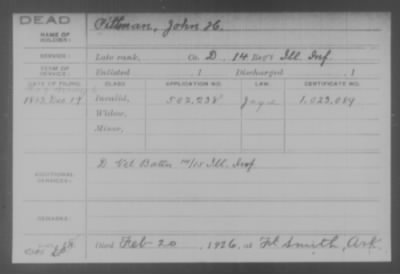 DEAD
NAME OF SOLDIER: Pittman, John H.
SERVICE: Late rank, Co. D, 14 Reg't Ill. Inf.
TERM OF SERVICE: Enlisted , 1 Discharged , 1
DATE OF FILING. CLASS. APPLICATION NO. LAW. CERTIFICATE NO.
Dec 17 Invalid, 502,238 1.023.084
Widow,
Minor,
ADDITIONAL SERVICES: D Vet Battn 14/15 Ill. Inf
REMARKS:
Died Feb 20, 1926, at Ft Smith, Ark